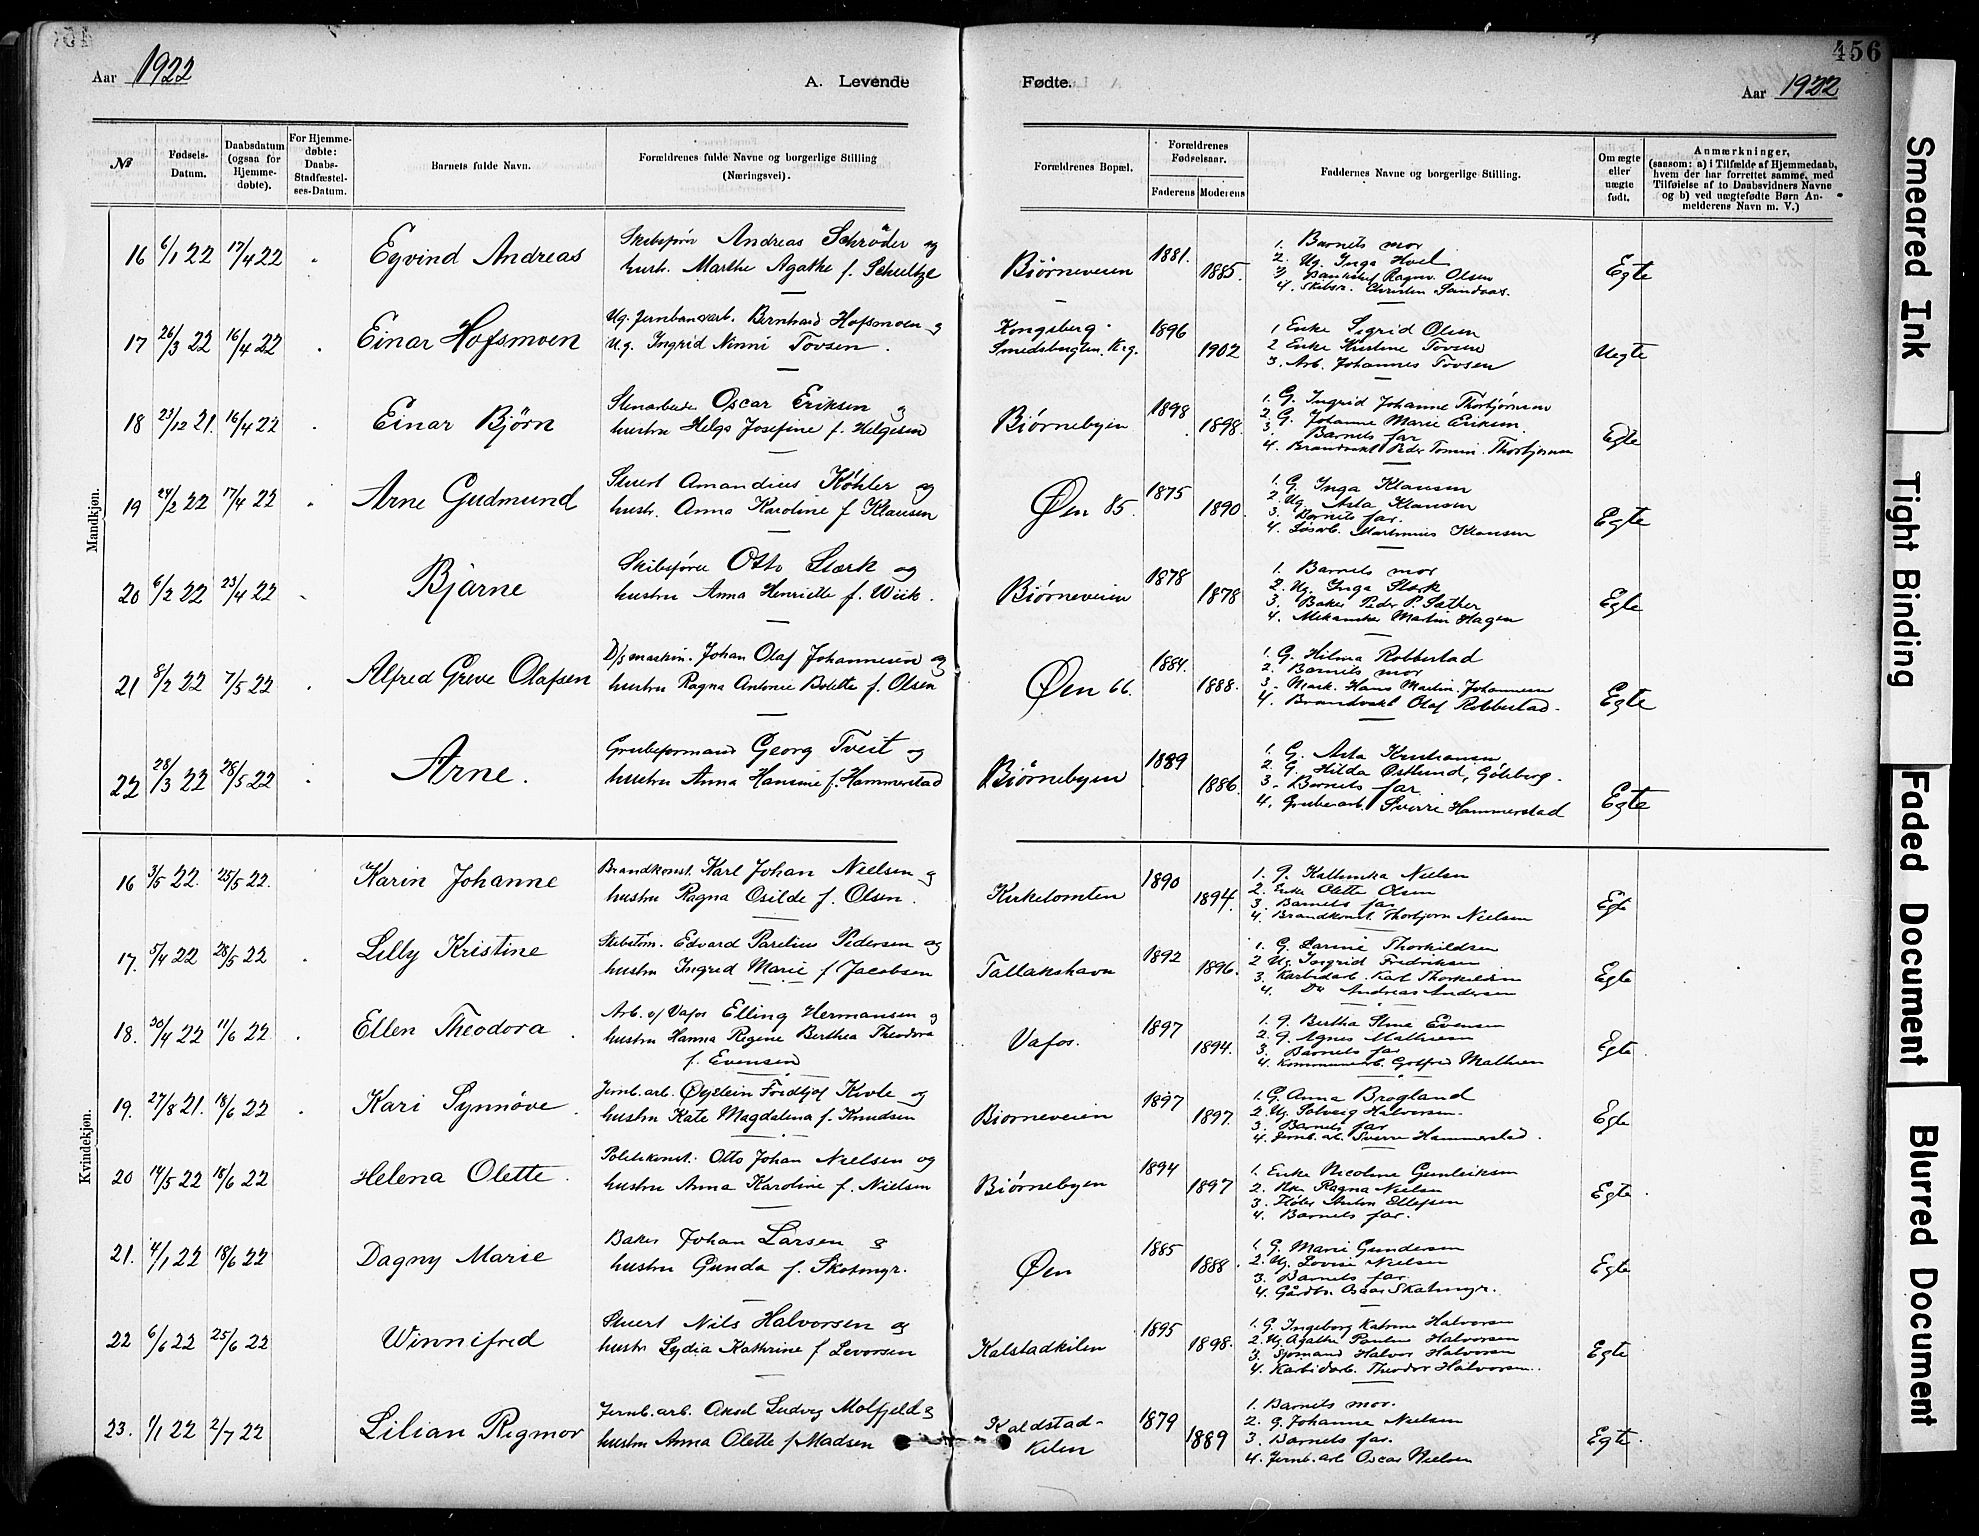 456
Aar 1922
A. Levende
Fødte.
Aar 1922
№
Fødsels-Datum.
Daabsdatum (ogsaa for Hjemme-døbte).
For Hjemme-døbte: Daabs-Stadfæstel-ses-Datum.
Barnets fulde Navn.
Forældrenes fulde Navne og borgerlige Stilling (Næringsvei).
Forældrenes Bopæl.
Forældrenes Fødselsaar.
Faderens
Moderens
Faddernes Navne og borgerlige Stilling.
Om ægte eller uægte født.
Anmærkninger,
(saasom: a) i Tilfælde af Hjemmedaab,
hvem der har forrettet samme, med
Tilføielse af to Daabsvidners Navne
og b) ved uægtefødte Børn An-
melderens Navn m. V.)
Mandkjøn.
16 6/1 22 17/4 22 Eyvind Andreas
Skibsfører Andreas Schrøder og
hustr. Marthe Agathe f. Schultze
Bjørneveien 1881. 1885.
1. Barnets mor
2. Ug. Inga Hoel
3. Ragnv. Olsen
4. Skibsr. Christen Sandaas.
Egte
17 26/3 22 16/4 22 Einar Hofsmoen
Ug. Jernbanearb. Bernhard Hofsmoen og
Ug. Ingrid Ninni Tovsen.
Kongsberg.
Smedsbugten. Krg.
1896 1902
1. Enke Sigrid Olsen
2 Enke Kristine Tovsen
3. Arb. Johannes Tovsen
Uegte
18 23/12 21. 16/4 22 Einar Bjørn
Stenarbeider Oscar Eriksen og
hustru Helga Josefine f. Helgesen
Bjørnebyen 1898 1898.
1. G. Ingrid Johanne Thorbjørnsen
2. G. Johanne Marie Eriksen.
3. Barnets far
4. Brandvakt Peder Tomin. Thorbjørnsen
Egte
19 24/2 22 17/4 22 Arne Gudmund
Stuert Amandius Køhler og
hustr. Anna Karoline f Klausen
Øen 85. 1875 1890.
1. G. Inga Klausen
2. Ug. Asta Klausen
3. Barnets far.
4. Løsarb. Martinius Klausen
Egte
20 6/2 22 23/4 22 Bjarne
Skibsfører Otto Stærk og
hustru Anna Henriette f. Wiik.
Bjørneveien 1878 1878
1. Barnets mor
2. Ug. Inga Stærk
3. Baker Peder P. Sæther
4. Mekaniker Martin Hagen
Egte
21 8/2 22 7/5 22 Alfred Greve Olafsen
D/s maskin. Johan Olaf Johannesen og
hustru Ragna Antonie Bolette f. Olsen
Øen 66. 1884. 1888.
1. G. Hilma Robberstad
2. Barnets mor
3. Mask. Hans Martin Johannesen
4. Brandvakt Olaf Robberstad.
Egte
22 28/3 22 28/5 22 Arne.
Grubeformand Georg Tveit og
hustru Anna Hansine f. Hammerstad
Bjørnebyen 1889 1886.
1. G. Asta Kristiansen
2. G. Hilda Østlund, Göteborg.
3. Barnets far
4. Grubearb. Sverre Hammerstad
Egte
Kvindekjøn.
16 3/5 22. 25/5 22. Karin Johanne
Brandkonst. Karl Johan Nielsen og
hustru Ragna Osilde f. Olsen.
Kirketomten 1890 1894.
1. G. Nielsen
2. Enke Olette Olsen
3. Barnets far
4. Brandkonst. Thorbjørn Nielsen
Egte
17. 5/4 22 28/5 22 Lilly Kristine
Skibstøm. Edvard Parelius Pedersen og
hustru Ingrid Marie f Jacobsen
Tallakshavn 1892 1896.
1. G. Thorkildsen
2 Ug. Ingrid Fredriksen
3. Karbidarb. Karl Thorkildsen
4. Do Andreas Andersen
Egte
18. 30/4 22 11/6 22 Ellen Theodora
Arb. v/ Vafos Elling Hermansen og
hustru Hanna Regine Berthea Theodora
f. Evensen
Vafos. 1897 1894.
1. G. Bertha Stine Evensen
2. G. Agnes Mathisen
3. Barnets far
4. Kommunearb. Gotfred Mathisen
Egte
19. 27/8 21. 18/6 22 Kari Synnøve
Jernb. arb. Øystein Fridtjof Kivle og
hustru Kate Magdalena f. Knudsen
Bjørneveien 1897 1897.
1. G. Anna Brogland
2. Ug. Solveig Halvorsen.
3. Barnets far
4. Jernb. arb. Sverre Hammerstad.
Egte
20 14/5 22 18/6 22 Helena Olette
Politikonst. Otto Johan Nielsen og
hustru Anna Karoline f. Nielsen
Bjørnebyen 1894 1897
1. Enke Nicoline Gunleiksen
2. Ragna Nielsen
3. Fløter Anton Ellefsen
4. Barnets far.
Egte
21. 4/1 22 18/6 22 Dagny Marie
Baker Johan Larsen og
hustru Gunda f. Skotmyr.
Øen 1885 1888.
1. G. Marie Gundersen
2. Ug. Lovise Nielsen
3. Barnets far
4. Gårdbr. Oscar Skotmyr.
Egte
22 6/6 22 25/6 22 Winnifred
Stuert Nils Halvorsen og
hustr. Lydia Kathrine f Levorsen
Kalstadkilen 1895 1898.
1. G. Ingeborg Katrine Halvorsen
2. Ug. Agathe Pauline Halvorsen
3. Sjømand Halvor Halvorsen
4. Karbidarb. Theodor Halvorsen.
Egte
23. 1/1 22 2/7 22 Lilian Rigmor
Jernb. arb. Aksel Ludvig Molfjeld og
hustru Anna Olette f. Madsen
Kaldstad-
kilen
1879 1889
1. Barnets mor.
2. G. Johanne Nielsen
3. Barnets far.
4. Jernb. arb Oscar Nielsen
Egte.
Smeared Ink
Tight Binding
Faded Document
Blurred Document